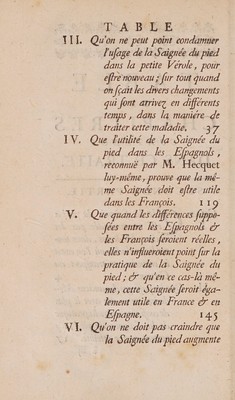 TABLE
III. Qu'on ne peut point condamner
l'usage de la Saignée du pied
dans la petite Vérole, pour
estre nouveau; sur tout quand
on sçait les divers changements
qui sont arrivez en différents
temps, dans la maniére de
traiter cette maladie. 37
IV. Que l'utilité de la Saignée du
pied dans les Espagnols,
reconnuë par M. Hecquet
luy-même, prouve que la mê-
me Saignée doit estre utile
dans les François. 119
V. Que quand les différences suppo-
sées entre les Espagnols &
les François seroient réelles,
elles n'influeroient point sur la
pratique de la Saignée du
pied; & qu'en ce cas-là mê-
me, cette Saignée seroit éga-
lement utile en France & en
Espagne. 145
VI. Qu'on ne doit pas craindre que
la Saignée du pied augmente